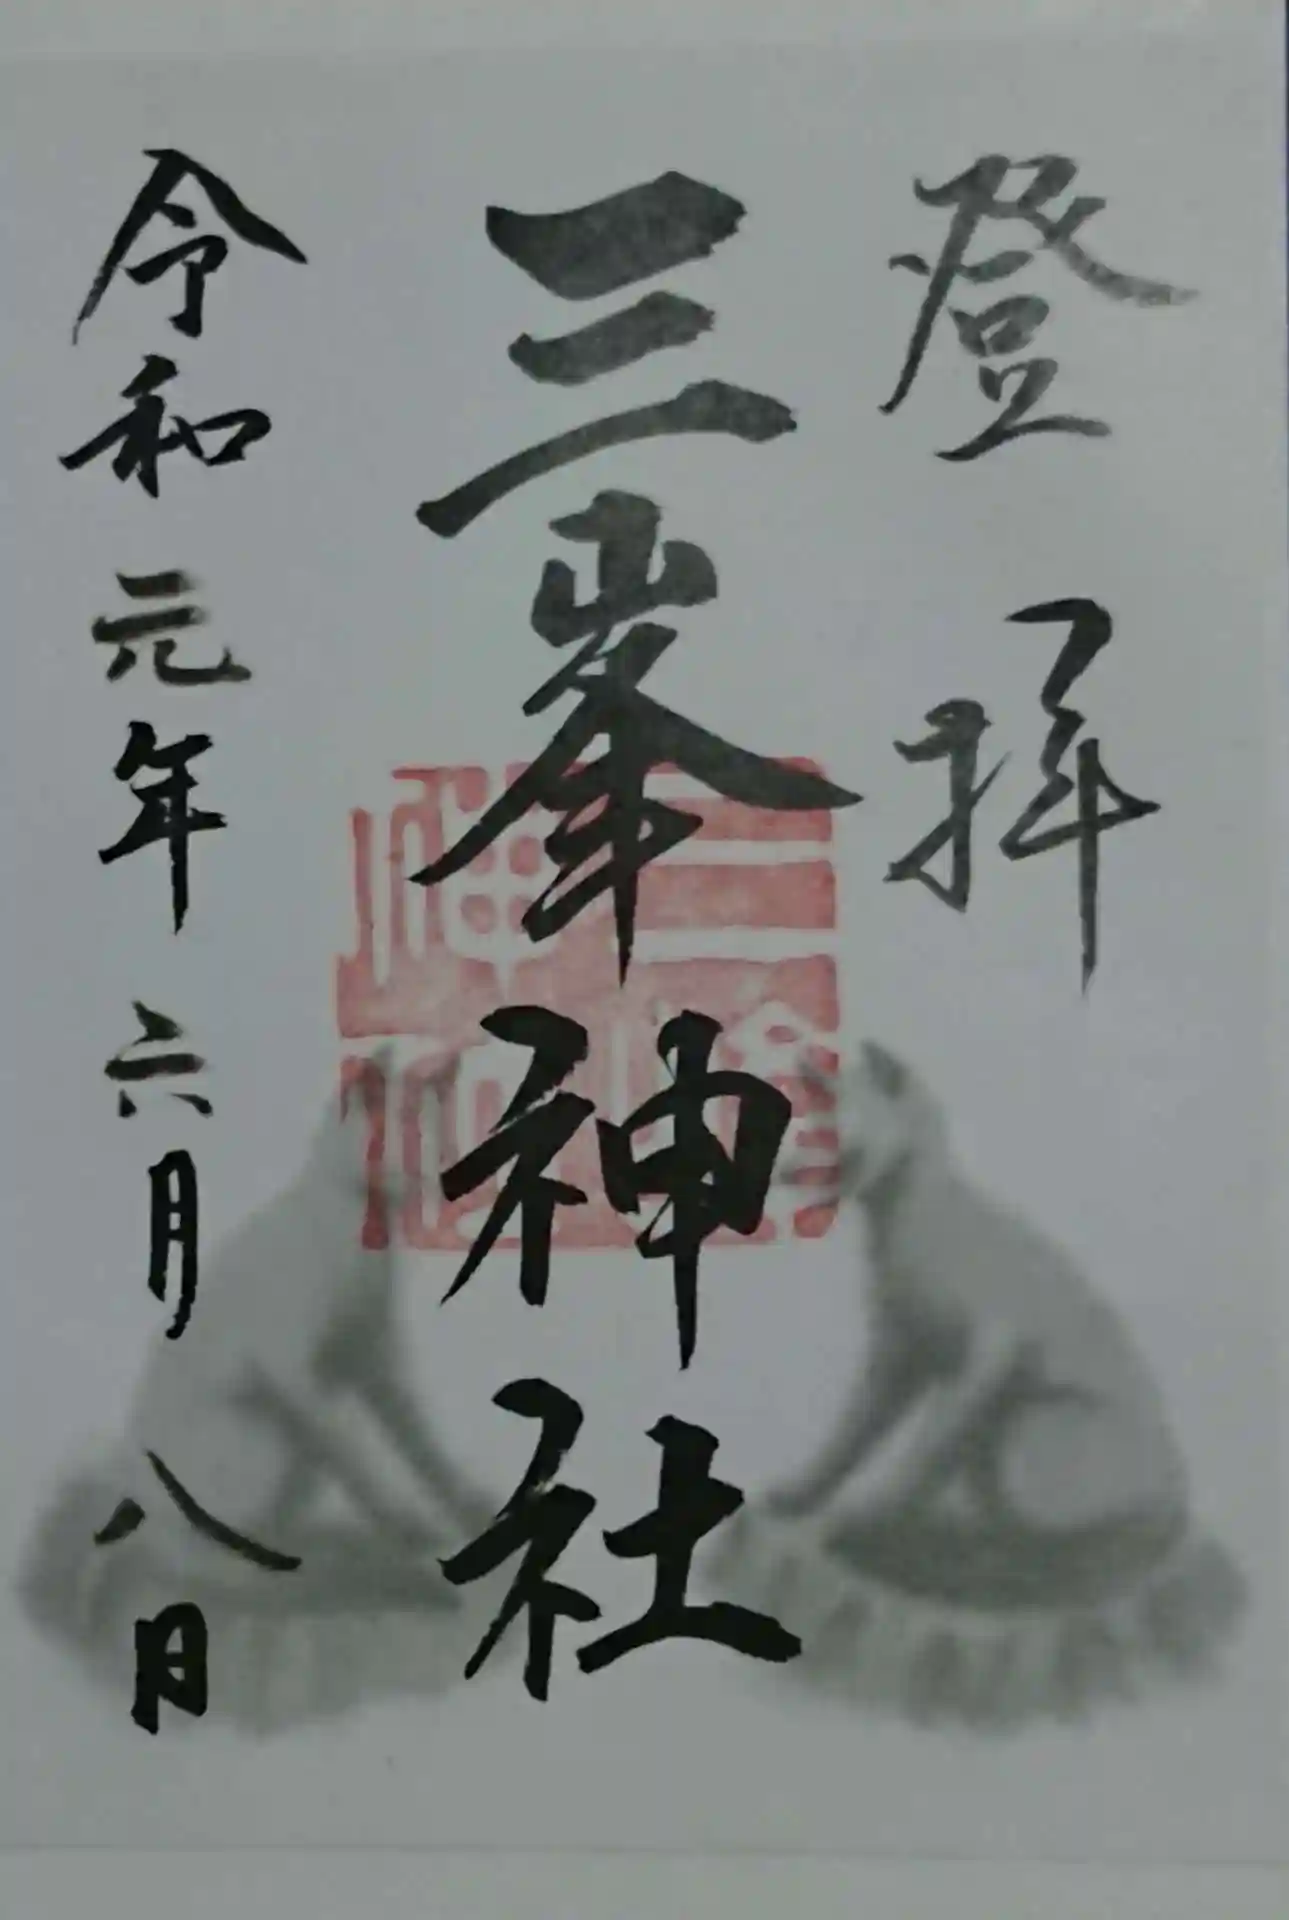 登拝
三峯神社
令和元年六月八日
三峰神社